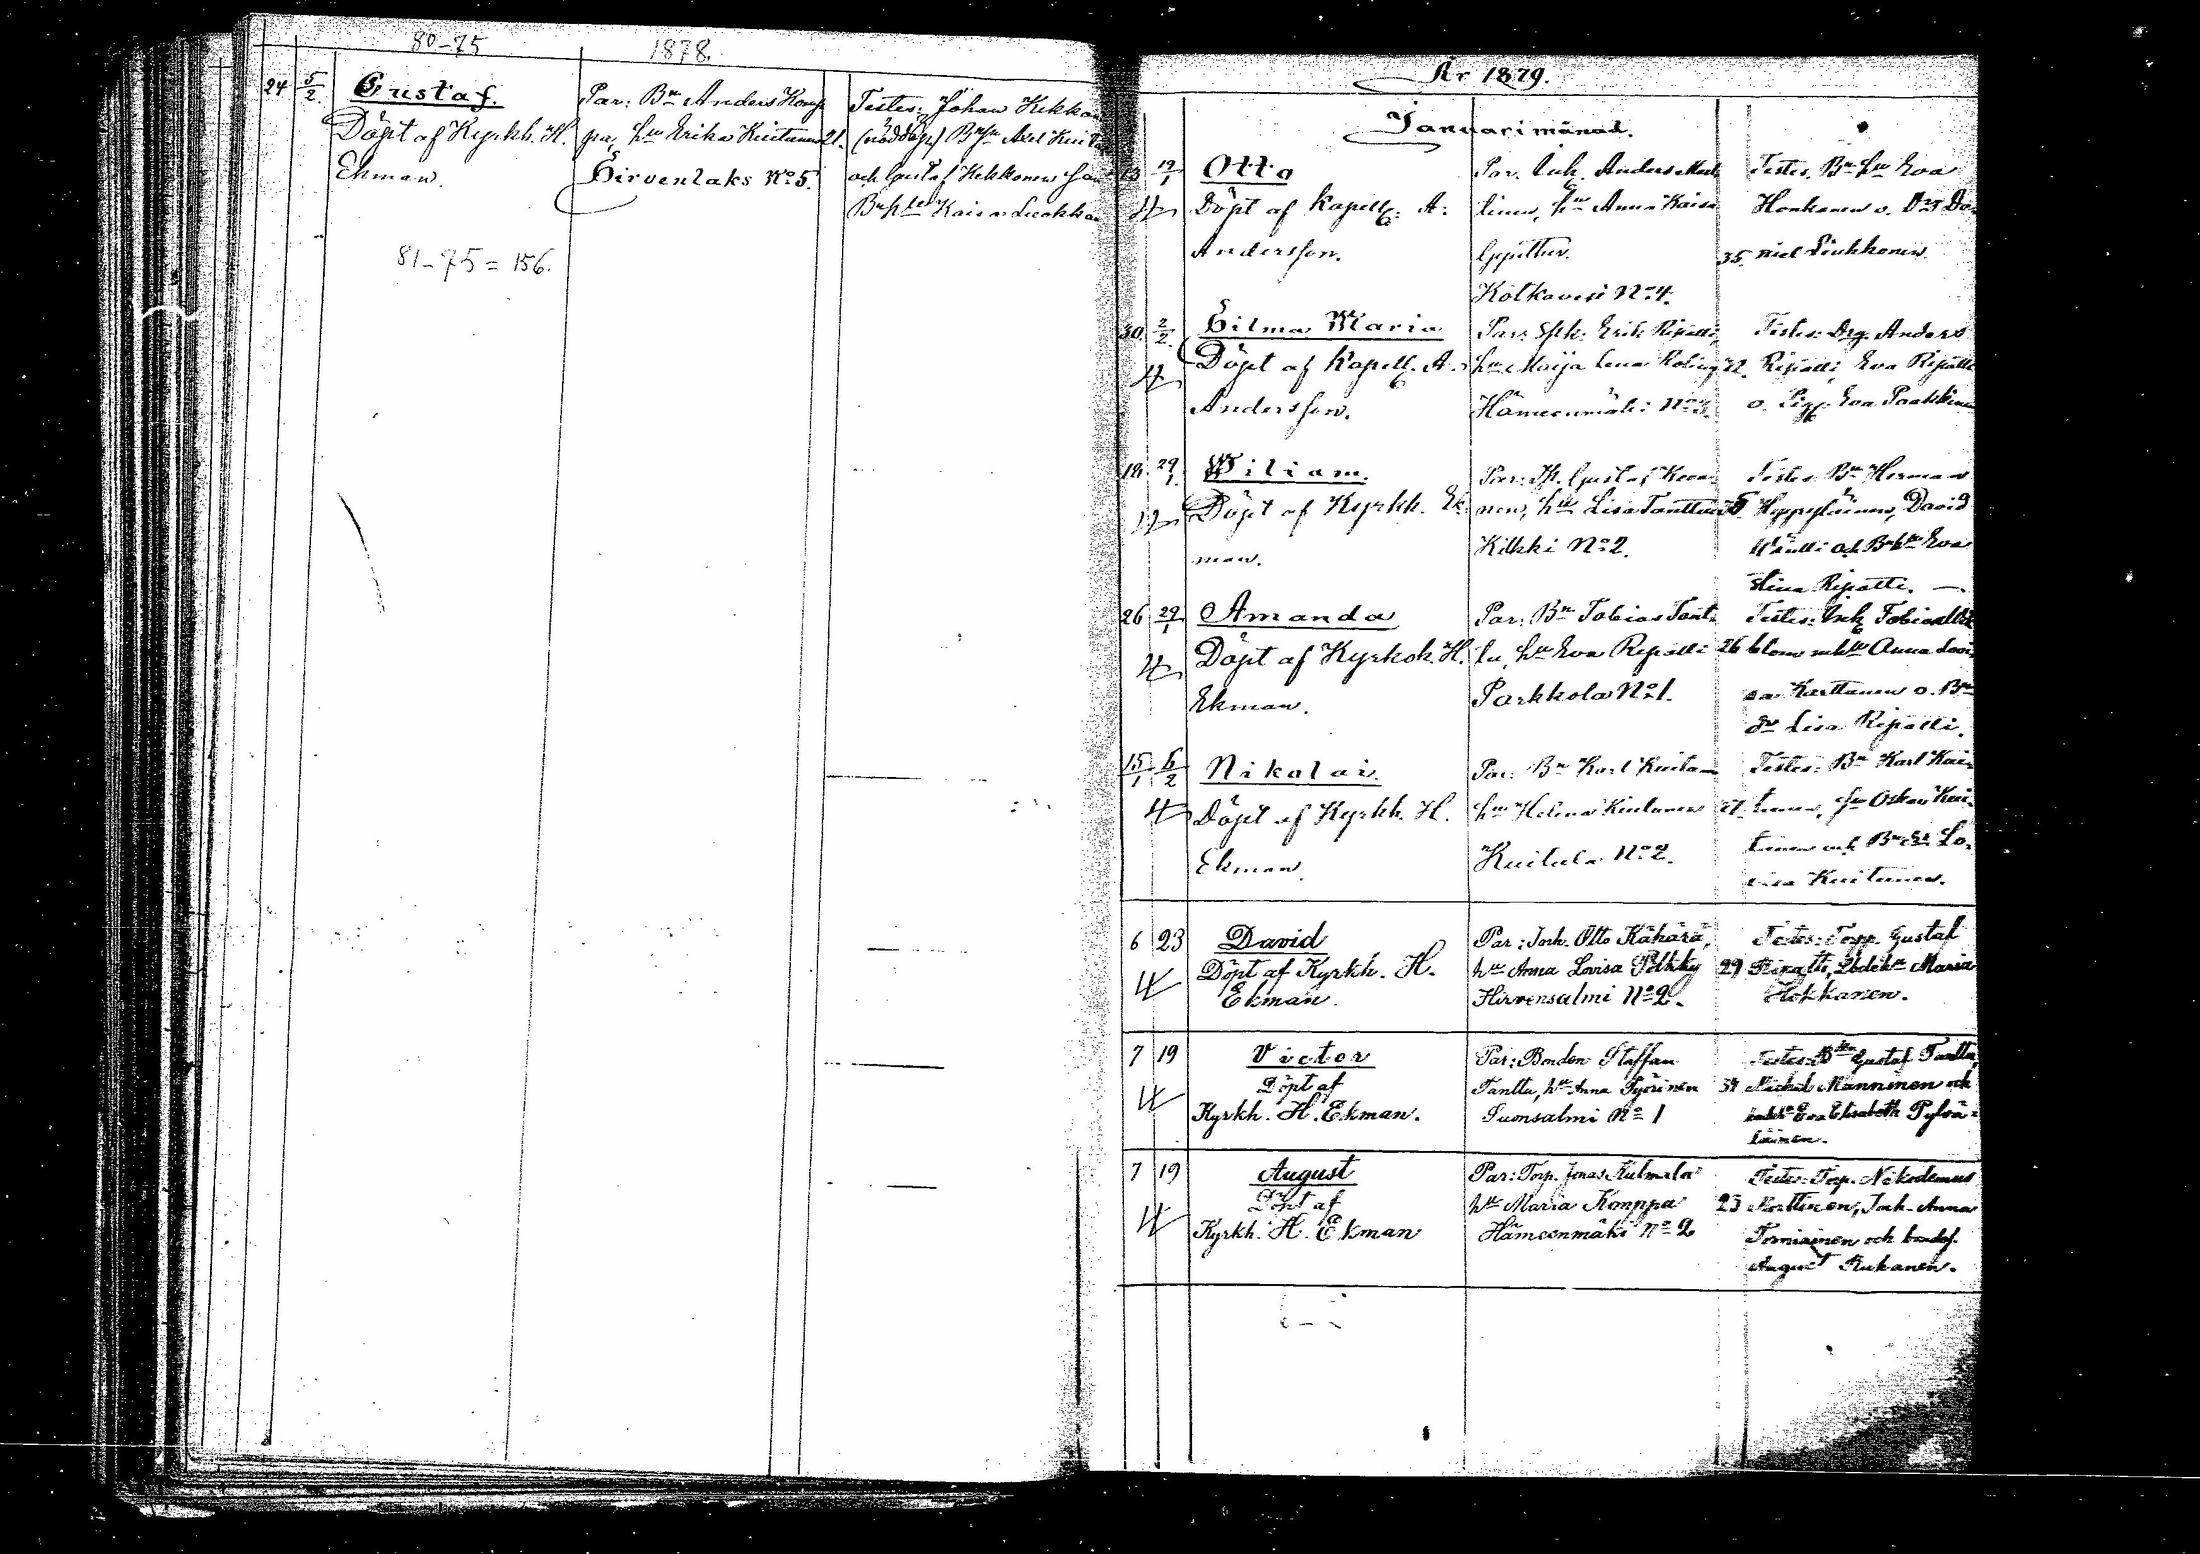 80-75
1878.
24 5/2. Gustaf.
Döpt af Kyrkh. H.
Ekman.
Par: Bn Anders Komp
pa, hu Erika Kuitunen 21.
Hirvenlaks No 5.
Testes: Johan Kekko
(nöddöpt) Axel
och Gustaf Kekkonen
Kaisa
81-75=156.
År 1879.
Januari månad.
13 19/1 Otto
Döpt af Kapell. A.
Andersson.
Par. Inh. Anders
hu Anna Kaisa
Kotkavesi No 4.
Testes. Bn hu Eva
Honkanen o. Da-
35. niel Liukkonen.
30 2/2. Hilma Maria
Döpt af Kapell. A.
Andersson.
Par: Erik Ripatti,
hu Maija Lena 22.
Hämeenmäki
Testes: Drg. Anders
Ripatti, Eva Ripatti
o. Eva Paakkinen
18. 29/1. Wiliam.
Döpt af Kyrkh. Ek-
man.
Par: Gustaf
nen, hu Lisa Tanttu
Kilkki No 2.
Testes Bn Herman
David
och Eva
Stina Ripatti.
26 29/1 Amanda
Döpt af Kyrkoh. H.
Ekman.
Par: Bn Tobias Tant-
tu, hu Eva Ripatti 26
Parkkola No 1.
Testes: Inh Tobias
blom Anna Lovi-
sa Karttunen o. Bn
dr Lisa Ripatti.
15/1 6/2 Nikolai.
Döpt af Kyrkh. H.
Ekman.
Par: Bn Karl Kuitunen
hu Helena Kuitunen 27.
Kuitula No 2.
Testes: Bn Karl Kui-
tunen, Oskar Kui-
tunen och Lo-
visa Kuitunen.
6 23 David
Döpt af Kyrkh. H.
Ekman.
Par: Inh. Otto Kähärä,
hu Anna Lovisa Pölkky 29
Hirvensalmi No 2.
Testes: Torp. Gustaf
Ripatti, Maria
Hokkanen.
7 19 Victor
Döpt af
Kyrkh. H. Ekman.
Par: Bonden Staffan
Tanttu, hu Anna Työrinen 34
Suonsalmi No 1
Testes: Gustaf Tanttu,
Michel Manninen och
Eva Elisabeth Pylvä-
läinen.
7 19 August
Döpt af
Kyrkh. H. Ekman
Par: Torp. Jonas Kulmala
hu Maria Komppa 23
Hämeenmäki No 2
Testes: Torp. Nikodemus
Korttinen, Inh. Anna
Torniainen och bondes.
August Rukanen.